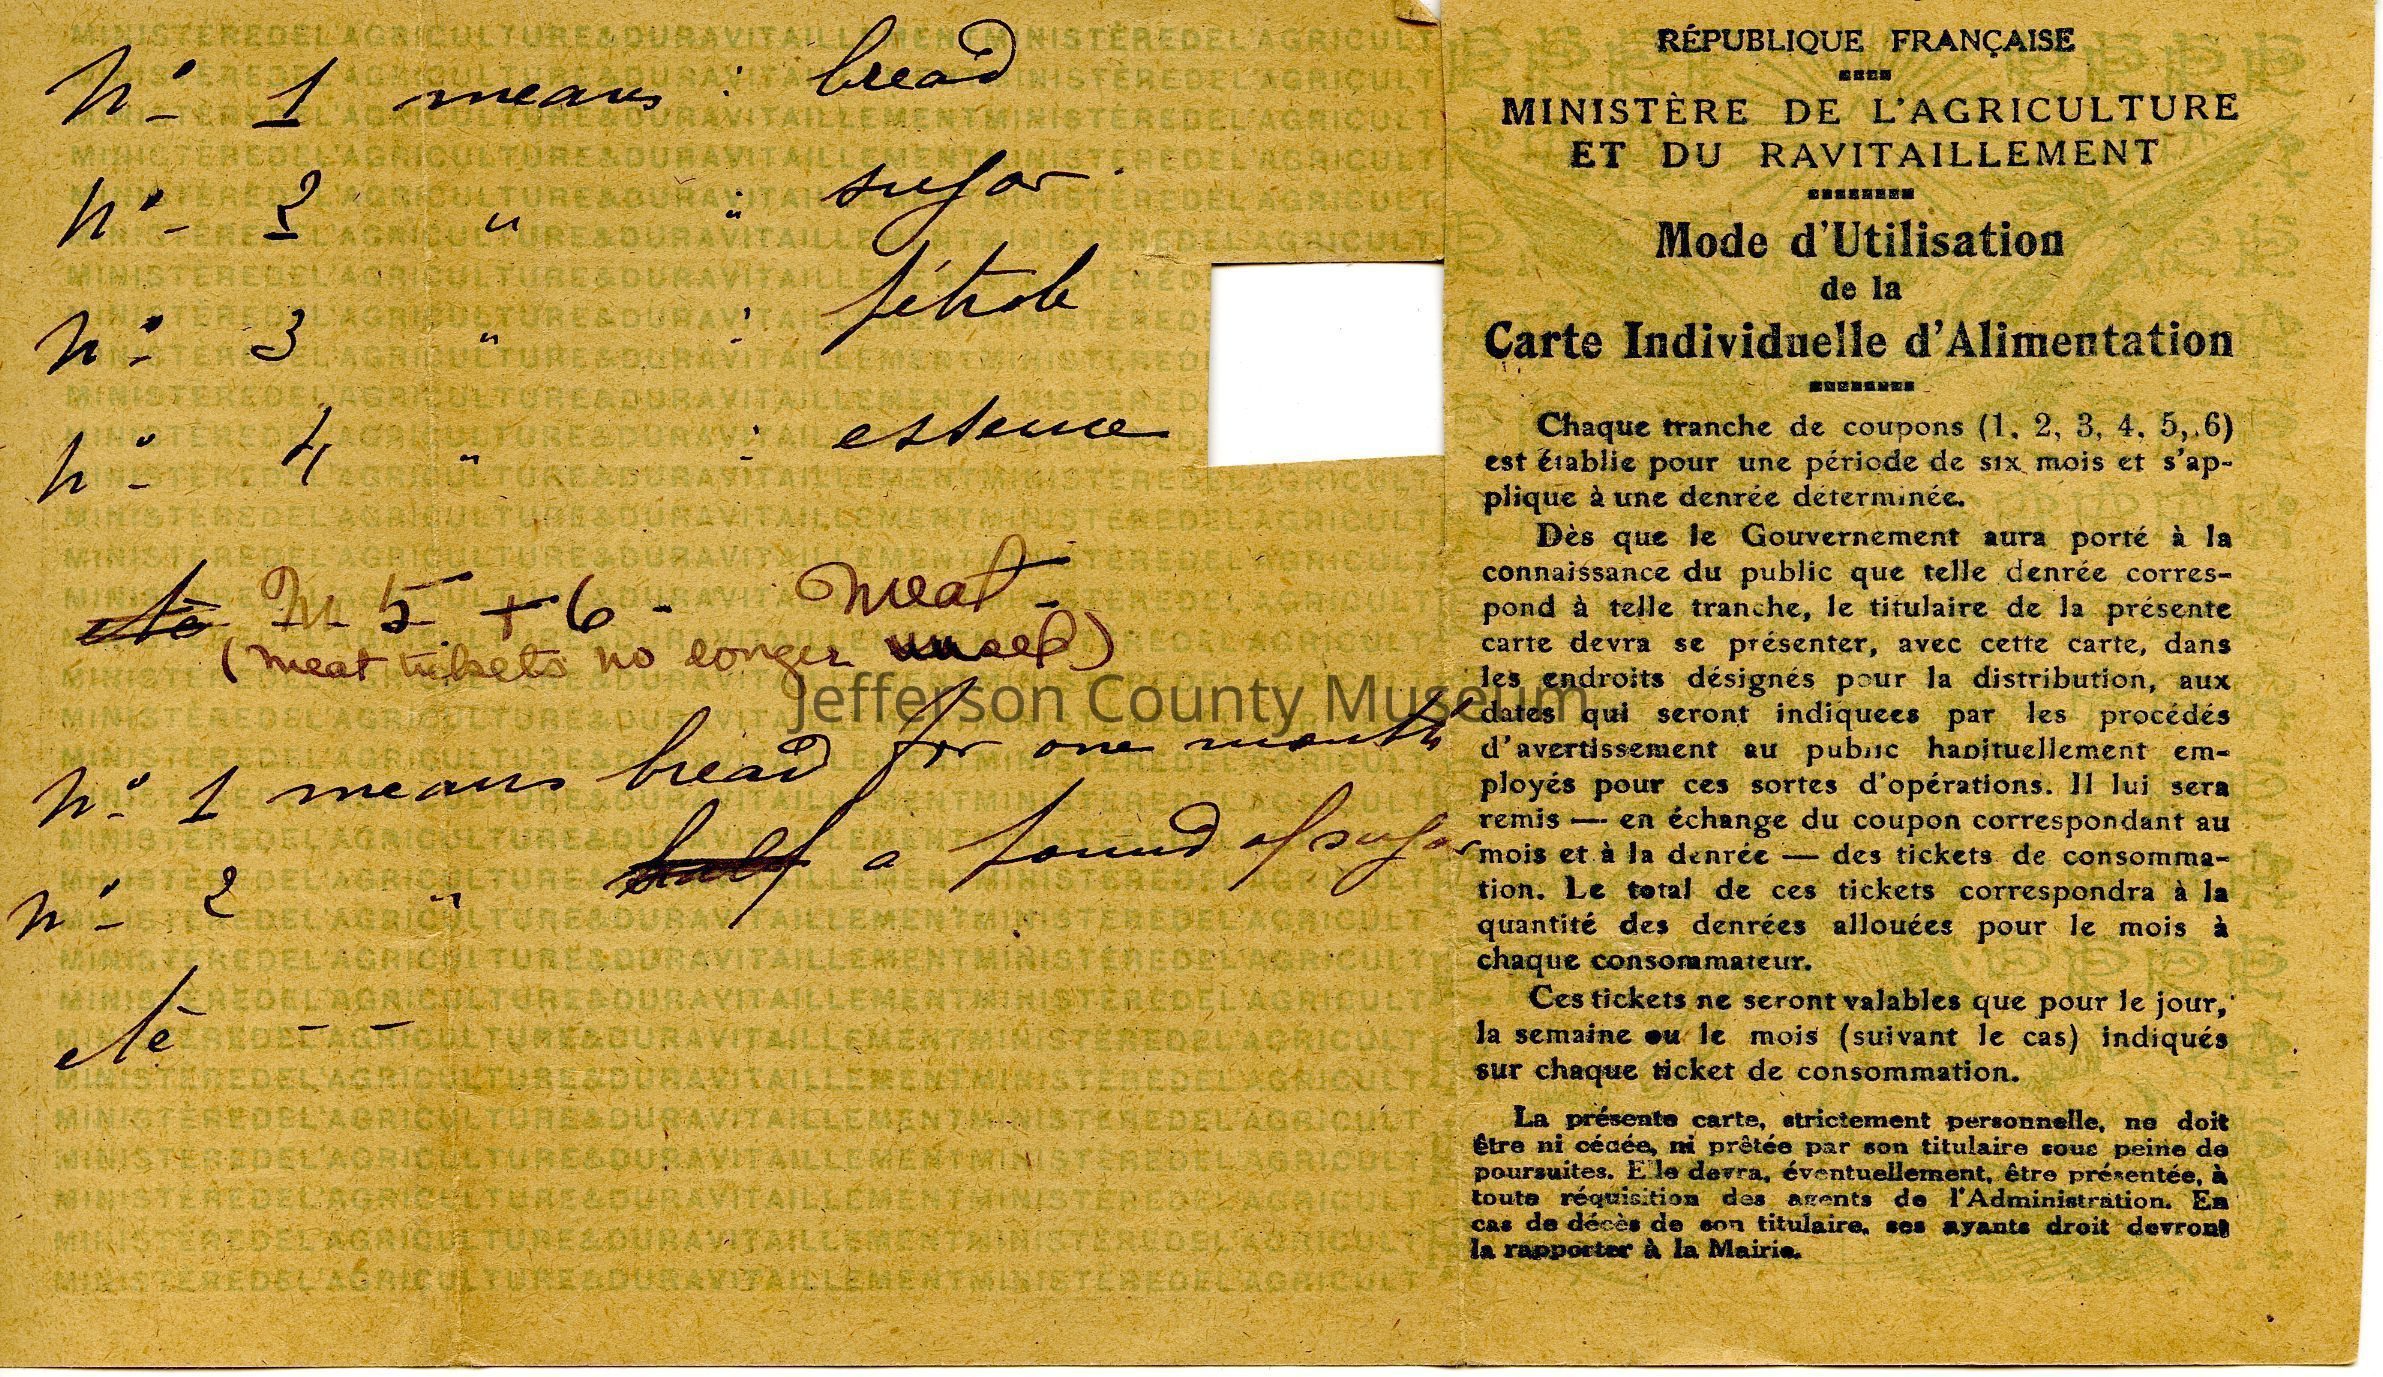 No 1 means : bread
No 2 " " sugar
No 3 " : pétrole
No 4 " : essence
etc No 5 + 6 - Meat -
(meat tickets no longer used)
No 1 means bread for one month
No 2 " half a pound of sugar
etc - -
Jefferson County Museum
RÉPUBLIQUE FRANÇAISE
MINISTÈRE DE L'AGRICULTURE
ET DU RAVITAILLEMENT
Mode d'Utilisation
de la
Carte Individuelle d'Alimentation
Chaque tranche de coupons (1, 2, 3, 4, 5, 6)
est établie pour une période de six mois et s'ap-
plique à une denrée déterminée.
Dès que le Gouvernement aura porté à la
connaissance du public que telle denrée corres-
pond à telle tranche, le titulaire de la présente
carte devra se présenter, avec cette carte, dans
les endroits désignés pour la distribution, aux
dates qui seront indiquees par les procédés
d'avertissement au public habituellement em-
ployés pour ces sortes d'opérations. Il lui sera
remis — en échange du coupon correspondant au
mois et à la denrée — des tickets de consomma-
tion. Le total de ces tickets correspondra à la
quantité des denrées allouées pour le mois à
chaque consommateur.
Ces tickets ne seront valables que pour le jour,
la semaine ou le mois (suivant le cas) indiqués
sur chaque ticket de consommation.
La présente carte, strictement personnelle, ne doit
être ni cédée, ni prêtée par son titulaire sous peine de
poursuites. Elle devra, éventuellement, être présentée, à
toute réquisition des agents de l'Administration. En
cas de décès de son titulaire, ses ayants droit devront
la rapporter à la Mairie.